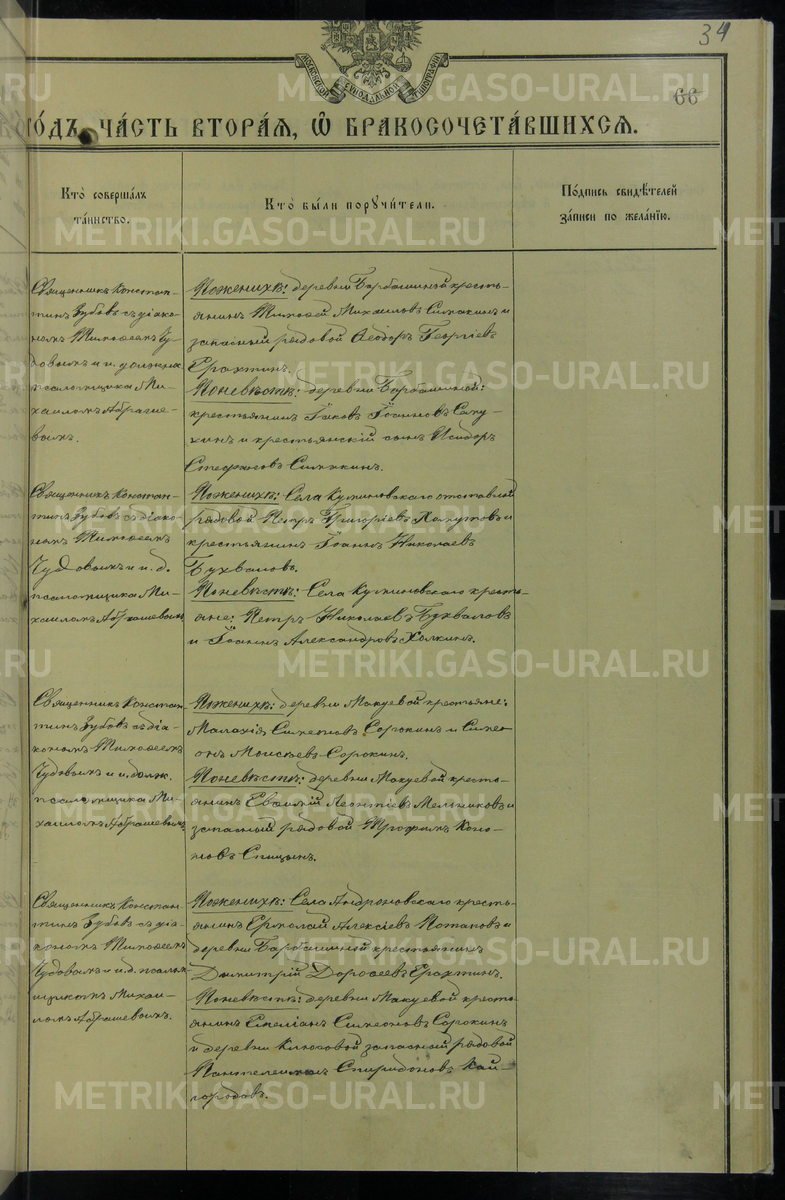 34
66
МОСКОВСКОЙ СѴНОДАЛЬНОЙ ТИПОГРАФІИ
го́дъ, ча́сть втора́ѧ, ѽ бракосочета́вшихсѧ.
Кто̀ соверша́лъ
та́инство.
Кто̀ бы́ли поручи́тели.
По́дпись свидѣ́телей
за́писи по жела́нію.
Священникъ Констан-
тинъ Зубовъ съ діако-
номъ Тимоѳеемъ Чу-
довымъ и и. должн.
псаломщика Ми-
хаиломъ Абраше-
вымъ.
По женихѣ: деревни Барбашиной кресть-
янинъ Тимоѳей Михаиловъ Симакинъ и
запасный рядовой Ѳеодоръ Георгіевъ
Ерахтинъ.
По невѣстѣ: деревни Барбашиной:
крестьянинъ Іаковъ Іоанновъ
и крестьянскій сынъ Исидоръ
Стефановъ Симакинъ.
Священникъ Констан-
тинъ Зубовъ съ діако-
номъ Тимоѳеемъ
Чудовымъ и и. д.
псаломщика Ми-
хаиломъ Абрашевымъ
По женихѣ: Села отставной
рядовой Петръ Григоріевъ и
крестьянинъ Іоаннъ Николаевъ
Бухваловъ.
По невѣстѣ: Села кресть-
яне: Петръ Николаевъ Бухваловъ
и Іоаннъ Александровъ Холкинъ.
Священникъ Констан-
тинъ Зубовъ съ діа-
кономъ Тимоѳеемъ
Чудовымъ и и. долж.
псаломщика Ми-
хаиломъ Абрашевымъ
По женихѣ: деревни Макуевой крестьяне:
Малахія Симеоновъ Сорокинъ и Симе-
онъ Моисеевъ Сорокинъ.
По невѣстѣ: деревни Макуевой кресть-
янинъ Леонтіевъ Мельниковъ и
запасный рядовой Трофимъ Коно-
новъ Спицынъ.
Священникъ Констан-
тинъ Зубовъ съ діа-
кономъ Тимоѳеемъ
Чудовымъ и и. д. псалом-
щика Михаи-
ломъ Абрашевымъ.
По женихѣ: Села Андроновскаго кресть-
янинъ Ермолай Алексіевъ Потаповъ и
деревни Барбашиной крестьянинъ
Димитрій Дороѳеевъ Ерахтинъ.
По невѣстѣ: деревни Макуевой кресть-
янинъ Емеліанъ Симеоновъ Сорокинъ
и деревни Клюковой запасный рядовой
Пантелеимонъ Спиридоновъ Кай-
городовъ.
METRIKI.GASO-URAL.RU